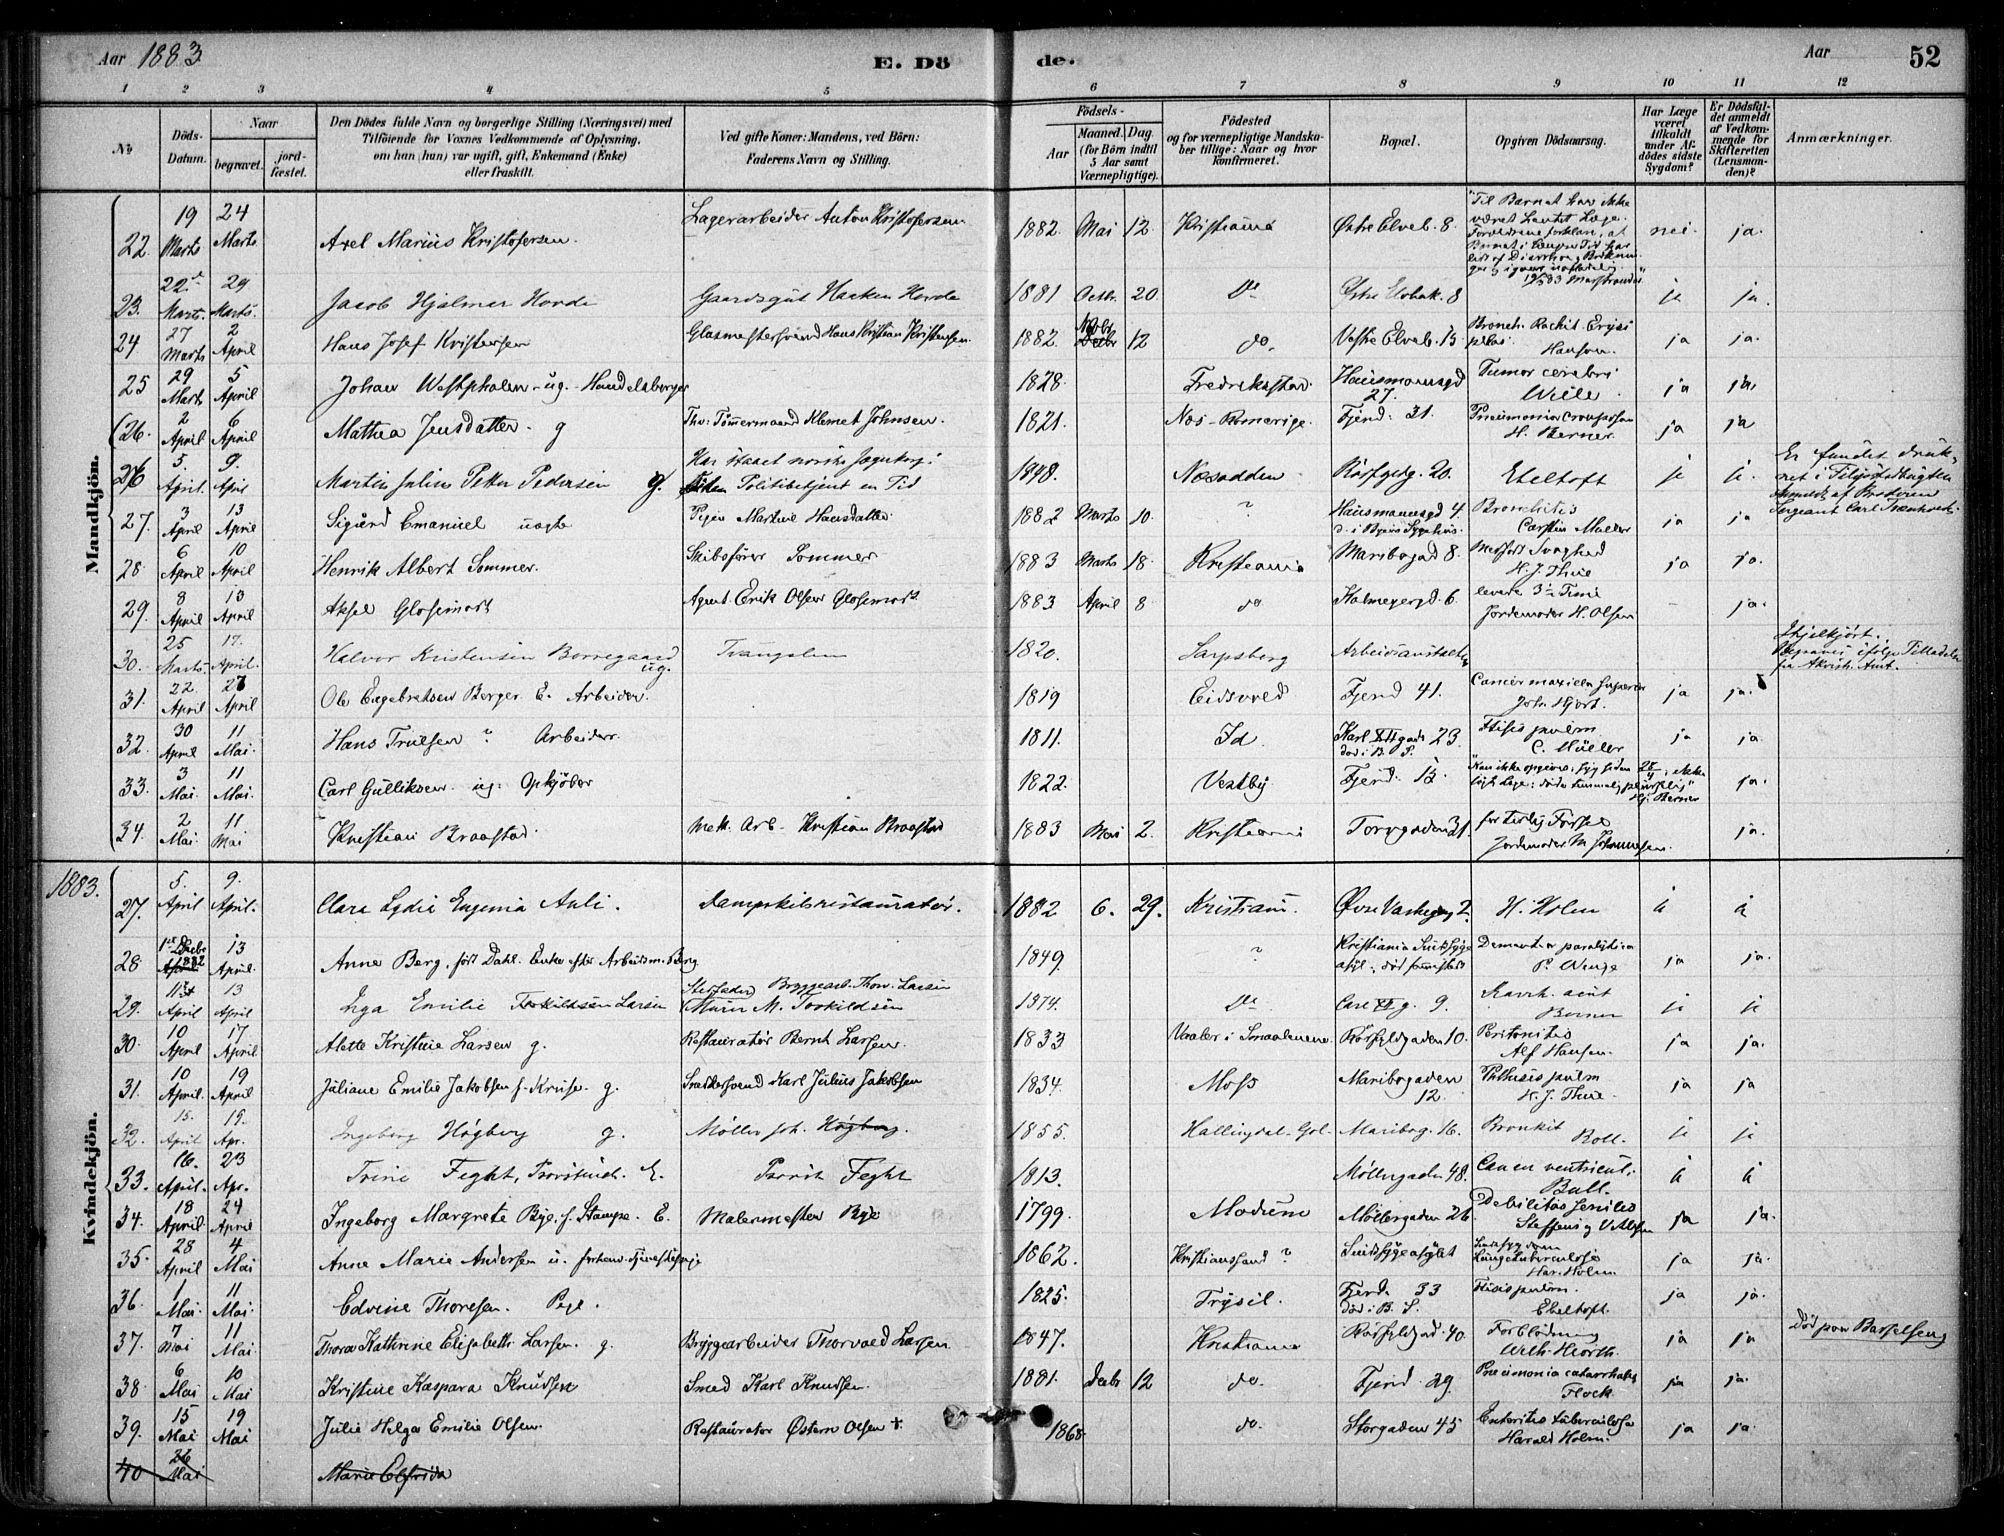 Aar 1883 E. Dö de. Aar 52
1 2 3 4 5 6 7 8 9 10 11 12
No. Döds-Datum. Naar begravet. jord-fæstet. Den Dödes fulde Navn og borgerlige Stilling (Næringsvei) med Tilföiende for Voxnes Vedkommende af Oplysning, om han (hun) var ugift, gift, Enkemand (Enke) eller fraskilt. Ved gifte Koner: Mandens, ved Börn: Faderens Navn og Stilling. Födsels- Aar Maaned. Dag. (for Börn indtil 5 Aar samt Værnepligtige). Födested og for værnepligtige Mandskaber tillige: Naar og hvor konfirmeret. Bopæl. Opgiven Dödsaarsag. Har Læge været tilkaldt under Afdödes sidste Sygdom? Er Dödsfaldet anmeldt af Vedkommende for Skifteretten (Lensmanden)? Anmærkninger.
Mandkjön.
22. 19 Marts 24 Marts Axel Marius Kristofersen. Lagerarbeider Anton Kristofersen. 1882. Mai 12 Kristiania Østre Elveb. 8 "Til Barnet har ikke været hentet Læge. Forældrene forklare, at Barnet i længere Tid har lidt af Diarrhoe nei ja.
23. 22de Marts. 29 Marts. Jacob Hjalmar Horde Gaardsgut Haaken Horde 1881 Octbr. 20 Do Østre Elvbak. 8 je ja.
24 27 Marts 2 April Hans Josef Kristensen Glasmestersvend Hans Kristian Kristensen. 1882. Novbr Decbr 12 do. Vestre Elveb. 13 Bronch. Rachit. Erysipelas. Hansen. ja ja.
25 29 Marts 5 April Johan Westphalen - ug. - Handelsborger 1828. Fredrikstad Hausmannsgd 27. Tumor cerebri Wille ja ja.
(26. 2 April 6 April Mathea Jensdatter. g Tømmermand Klemet Johnsen. 1821. Nes - Romerige. Fjerd. 31. Pneumonia crouposa H. Berner. ja ja
26 5. April. 9. April Martin Julius Petter Pedersen g. Har staaet norske Jægerkorps. Politibetjent en Tid 1848. Næsodden Rosfgdg. 20. Ebeltoft je je. Er fundet druknet i Anmeldt af Broderen Sergeant Carl
27. 3 April 13 April Sigurd Emanuel uægte Pigen Martine Hansdatter. 1882 Marts 10. " Hausmannsgd 4 d. i Byens Sygehus. Bronchitis Carsten Müller ja ja
28. 6 April 10 April Henrik Albert Sommer. Skibsfører Sommer 1883 Marts 18. Kristiania Maribogad 8. Medfødt Svaghed H. J. Thue ja ja.
29. 8 April 13 April Aksel Glosimodt Agent Erik Olsen Glosimodt 1883 April 8 do Kalmeyergd. 6. levede 3½ Time Jordemoder H. Olsen - ja.
30. 25 Marts. 17. April. Halvor Kristensen Borregaard ug. Tvangslem 1820. Sarpsborg Arbeidsanstalten Ihjelkjørt. Begraves ifølge Tilladelse fra Akersh. Amt.
31. 22. April 27 April Ole Engebretsen Berger E. Arbeider. 1819 Eidsvold Fjerd 41. Cancer maxillæ superior Joh. Hjort. ja ja.
32. 30 April 11 Mai. Hans Trulsen ? Arbeider. 1811. Id. Karl XII gade 23. död i B. S. Ftisis pulm C. Müller ja ja.
33. 3 Mai. 11 Mai. Carl Gulliksen. ug. Opkjøber 1822. Vestby Fjerd. 13. "Kan ikke opgives; syg siden 28/4; ikke søgt Læge; døde temmelig pludselig" Hj. Berner ja.
34. 2 Mai. 11 Mai Kristian Braastad. Mek. Arb. Kristian Braastad 1883 Mai 2. Kristiania Torvgaden 31. for tidlig Fødsel Jordemoder M. Johannesen. ja.
1883.
Kvindekjön.
27. 5. April 9. April. Clara Lydia Eugenia Auli. Dampskibsrestauratør. 1882 6. 29. Kristiani. Øvre Vaskegang 2. H. Holm ja ja
28 1ste Decbr 1882 April 13 April. Anne Berg, født Dahl. Enke efter Arbeidsm. Berg 1849. ? Kristiania Sindssygeasyl. død Dementia paralytica P. Winge ja ja.
29. 11te April 13 April Inga Emilie Torkildsen Larsen Stiffader Bryggearb. Thorv. Larsen Maren M. Torkildsen 1874. Do Carl XII g. 9. Berner je je
30. 10 April 17 April Alette Kristine Larsen g. Restauratør Bernt Larsen. 1833 Vaaler i Smaalenene Rosfeldtgaden 10. Peritonitis Alf Hansen. ja ja.
31. 10 April. 19 April Juliane Emilie Jakobsen f. Kruse. g. Snedkersvend Karl Julius Jakobsen 1834. Moss Maribogaden 12. Phthisis pulm H. J. Thue. ja ja
32. 15. April 19. Apr. Ingeborg Högberg g. Møller Joh. Högberg. 1855. Hallingdal. Gol. Maribog. 16. Bronkit Roll. je je
33. 16. April. 23 Apr. Trine Feght, E. Feght 1813. Møllergaden 48. Cancer ventriculi. Bull. ja ja
34. 18 April 24 April Ingeborg Margrete Bye, f. Stampe. E. Malermester Bye 1799. Modum Møllergaden 26. Debilitas senilis Steffens ja ja.
35. 28 April 4 Mai Anne Marie Andersen u. forhenv. Tjenestepige 1862. Kristianssand ? Sindssygeasylet Sindssygdom Lungetuberculose Har. Holm. ja ja.
36. 1 Mai. 11 Mai. Edvine Thoresen. Pige. 1825. Trysil. Fjerd. 33 död i B. S. Ftisis pulm. Ebeltoft. ja ja.
37. 7 Mai 11 Mai. Thora Kathrine Elisabeth Larsen. g. Bryggearbeider Thorvald Larsen 1847. Kristiania Rosfeldtgad. 40. Forblødning Wilh. Hiorth. ja ja Död paa Barselseng
38. 6 Mai 10 Mai Kristine Kaspara Knudsen Smed Karl Knudsen. 1881. Decbr 12 do. Fjerd. 29. Pneumonia catarrhalis Flock. ja ja.
39. 15 Mai 19 Mai Julie Helga Emilie Olsen. Restauratør Østern Olsen † 1868 do. Storgaden 45 Enteritis tuberculosa Harald Holm. ja ja
40 26 Mai Marie Elfrida